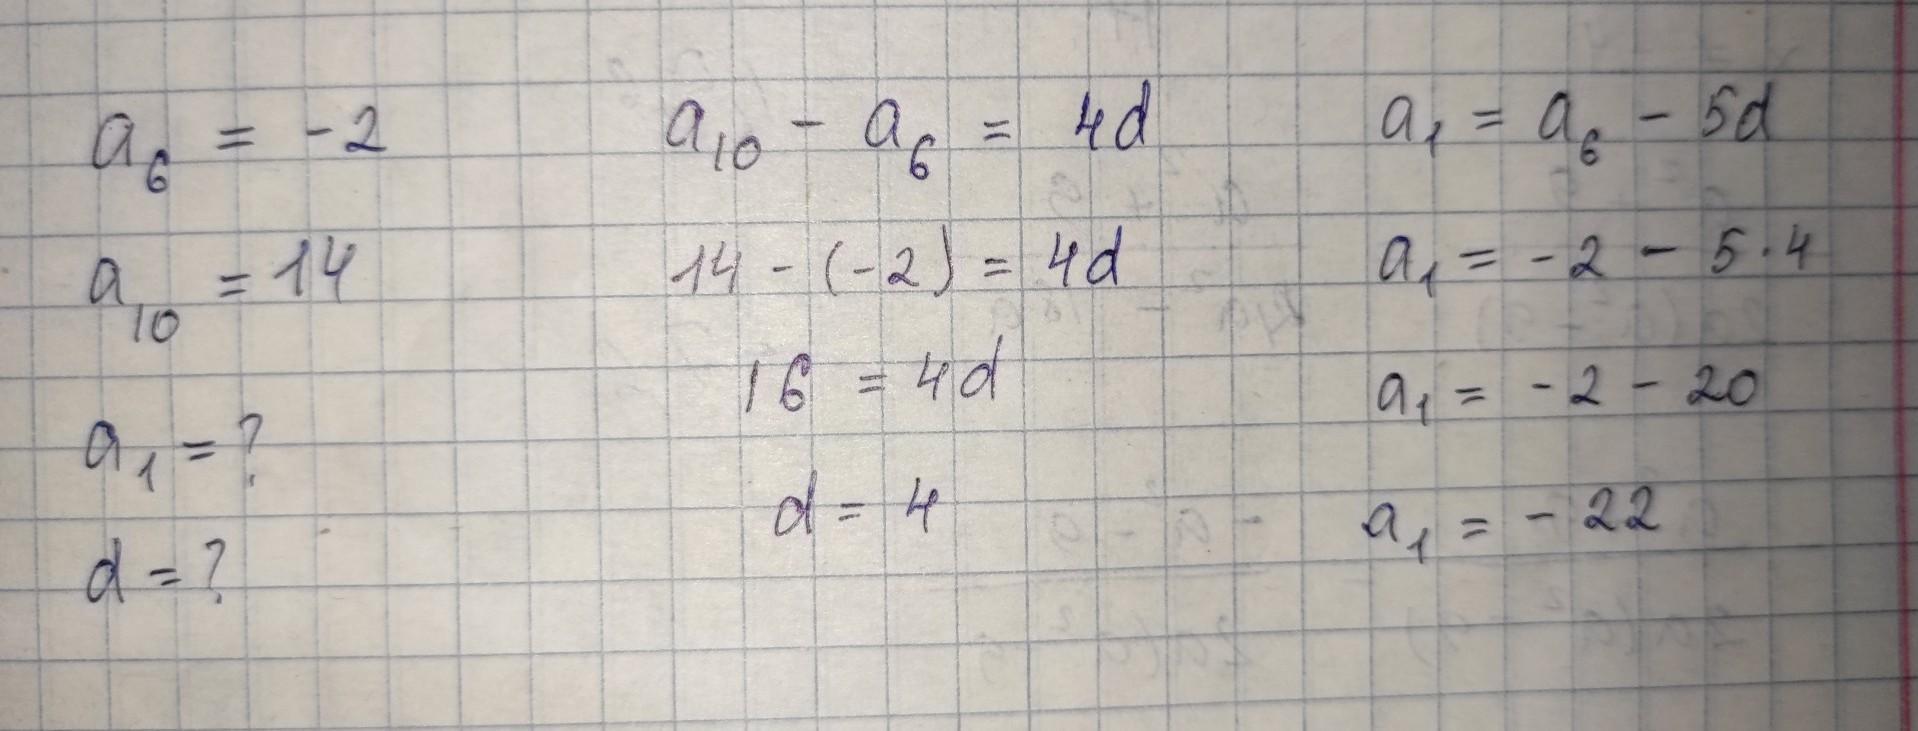 a₆ = -2
a₁₀ = 14
a₁ = ?
d = ?
a₁₀ - a₆ = 4d
14 - (-2) = 4d
16 = 4d
d = 4
a₁ = a₆ - 5d
a₁ = -2 - 5·4
a₁ = -2 - 20
a₁ = -22